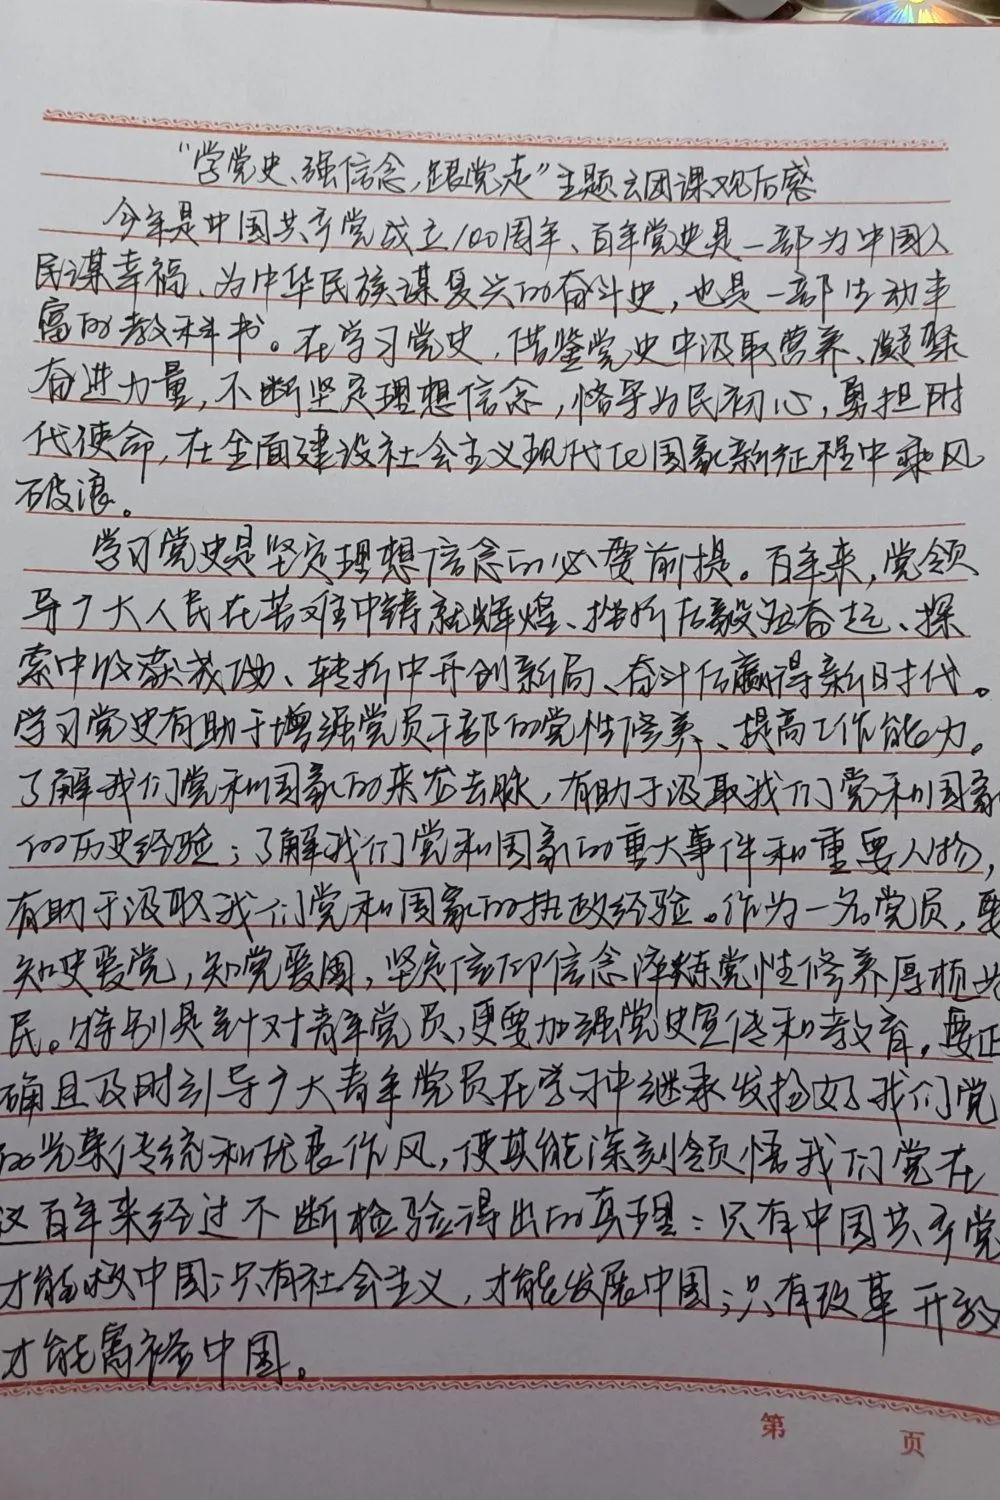 “学党史、强信念,跟党走”主题云团课观后感
今年是中国共产党成立100周年、百年党史是一部为中国人
民谋幸福、为中华民族谋复兴的奋斗史,也是一部生动丰
富的教科书。在学习党史,借鉴党史中汲取营养、凝聚
奋进力量,不断坚定理想信念,恪守为民初心,勇担时
代使命,在全面建设社会主义现代化国家新征程中乘风
破浪。
学习党史是坚定理想信念的必要前提。百年来,党领
导广大人民在苦难中铸就辉煌、挫折后毅然奋起、探
索中收获成功、转折中开创新局、奋斗后赢得新时代。
学习党史有助于增强党员干部的党性修养、提高工作能力。
了解我们党和国家的来龙去脉,有助于汲取我们党和国家
的历史经验;了解我们党和国家的重大事件和重要人物,
有助于汲取我们党和国家的执政经验。作为一名党员,要
知史爱党,知党爱国,坚定信仰信念淬炼党性修养厚植为
民。特别是针对青年党员,更要加强党史宣传和教育,要正
确且及时引导广大青年党员在学习中继承发扬好我们党
的光荣传统和优良作风,使其能深刻领悟我们党在
这百年来经过不断检验得出的真理:只有中国共产党
才能救中国;只有社会主义,才能发展中国;只有改革开放
才能富裕中国。
第 页